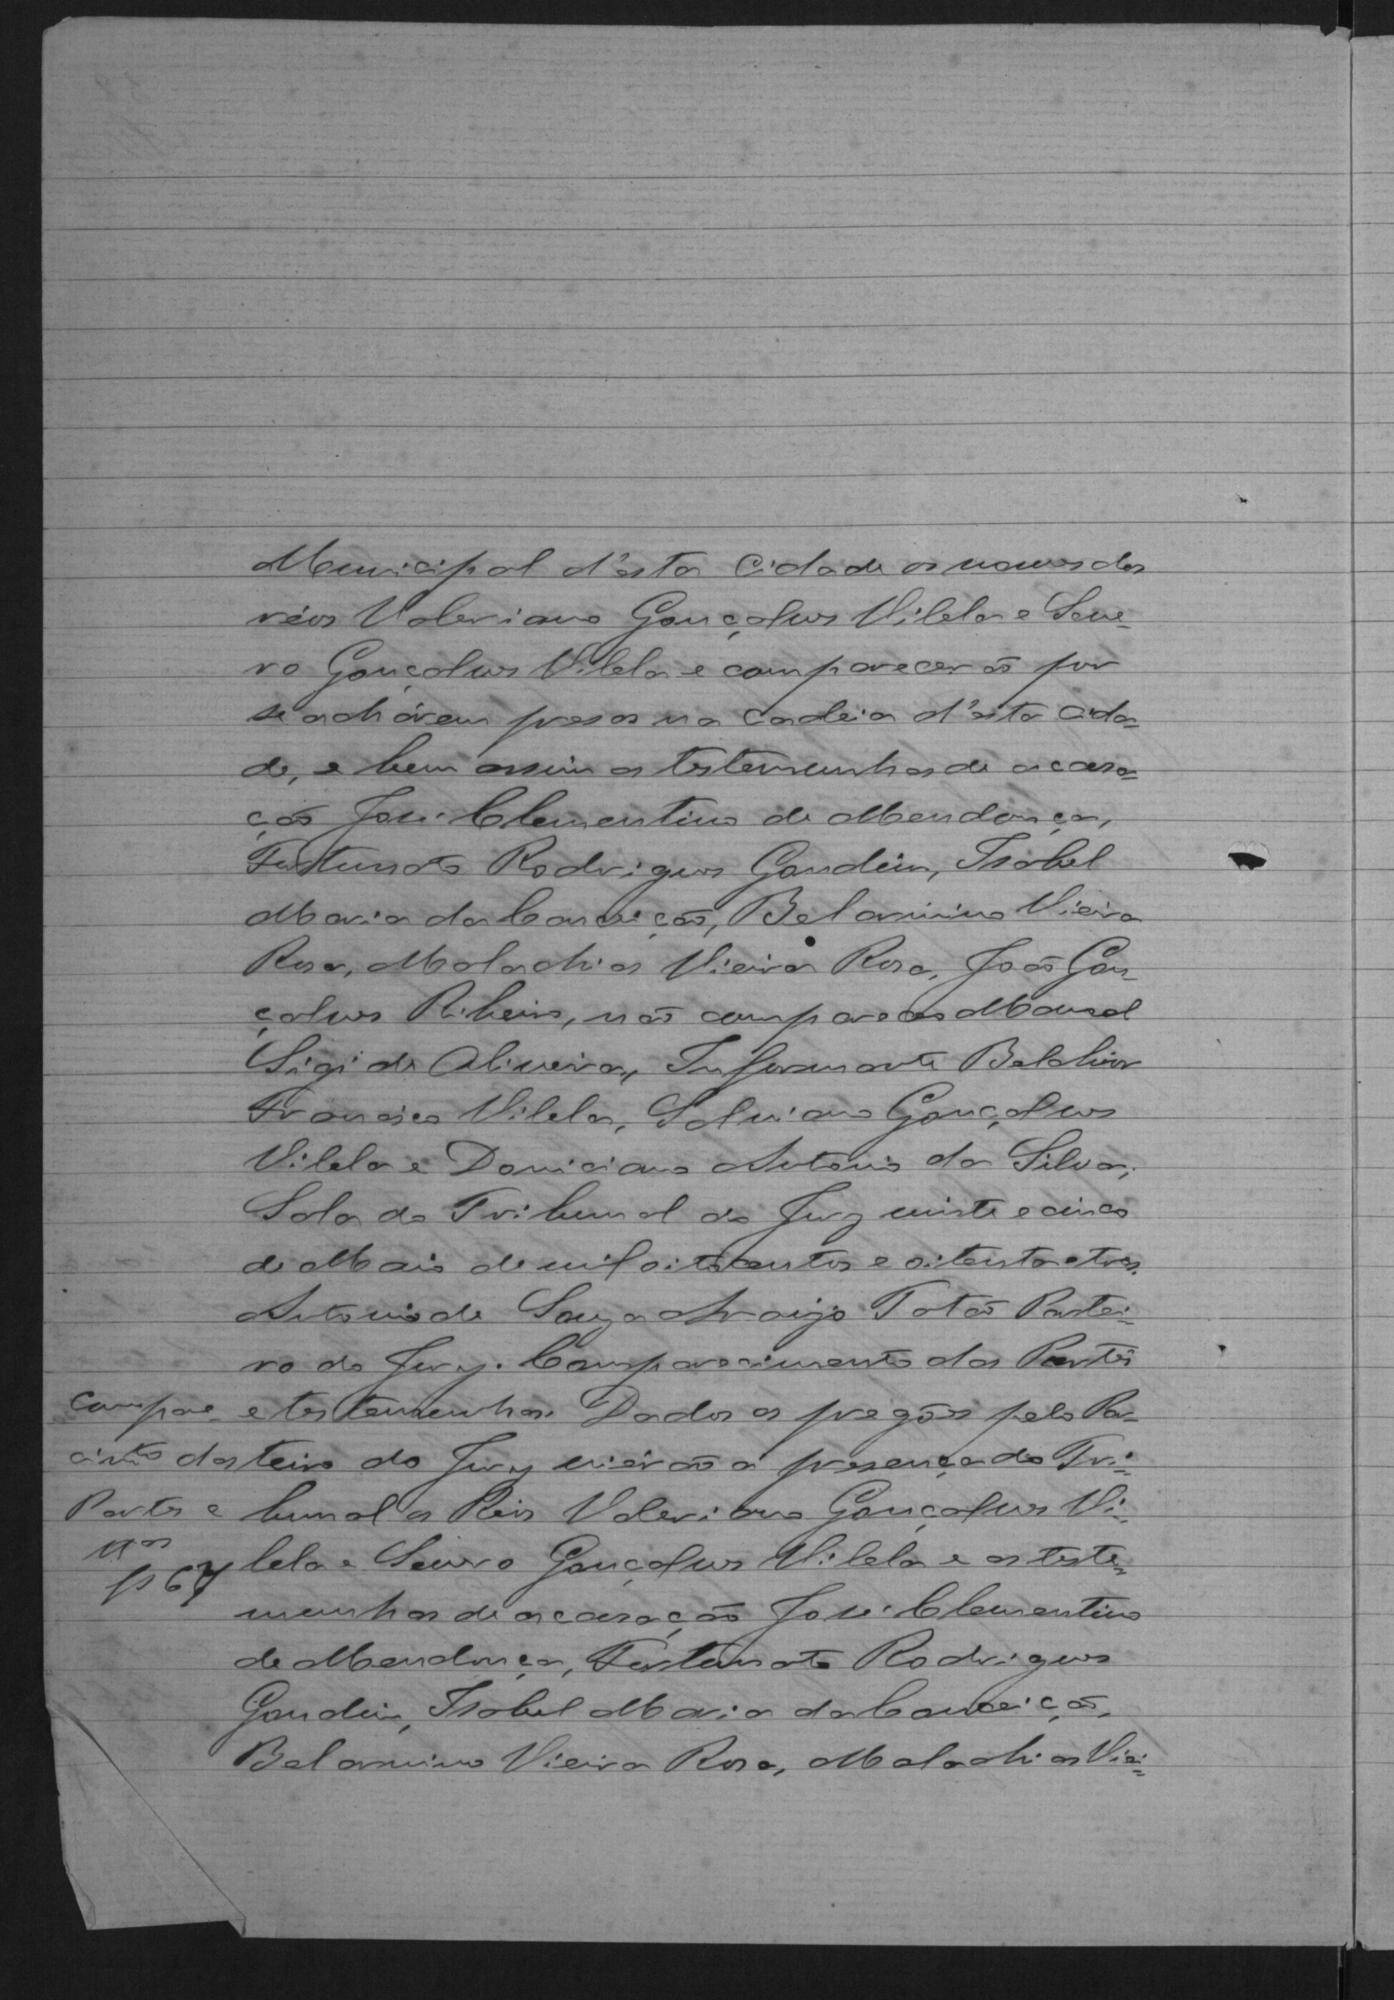 Municipal d'esta Cidade os nomes dos
réos Valeriano Gonçalves Vilela e Seve-
ro Gonçalves Vilela e comparecerão por
se achárem presos na Cadeia d'esta Cida=
de, e bem assim as testemunhas de acusa=
ção José Clementino de Mendonça,
Furtunato Rodrigues Gondim, Isabel
Maria da Conceição, Belarmino Vieira
Rosa, Malachias Vieira Rosa, João Gon-
çalves Ribeiro, não compareceo Manoel
de Oliveira, Informante Belchior
Francisco Vilela, Salviano Gonçalves
Vilela e Domiciano Antonio da Silva,
Sala do Tribunal do Jury vinte e cinco
de Maio de mil oitocentos e oitenta e tres.
Antonio de Souza Araujo Totão Portei-
ro do Jury. Comparecimento das Partes
e testemunhas. Dados os pregões pelo Por-
teiro do Jury vierão a presença do Tri=
bunal os Réos Valeriano Gonçalves Vi=
lela e Severo Gonçalves Vilela e as teste=
munhas de acusação José Clementino
de Mendonça, Furtunato Rodrigues
Gondim, Isabel Maria da Conceição,
Belarmino Vieira Rosa, Malachias Viei=
Compare-
cimto das
Partes e
tas
fs 67